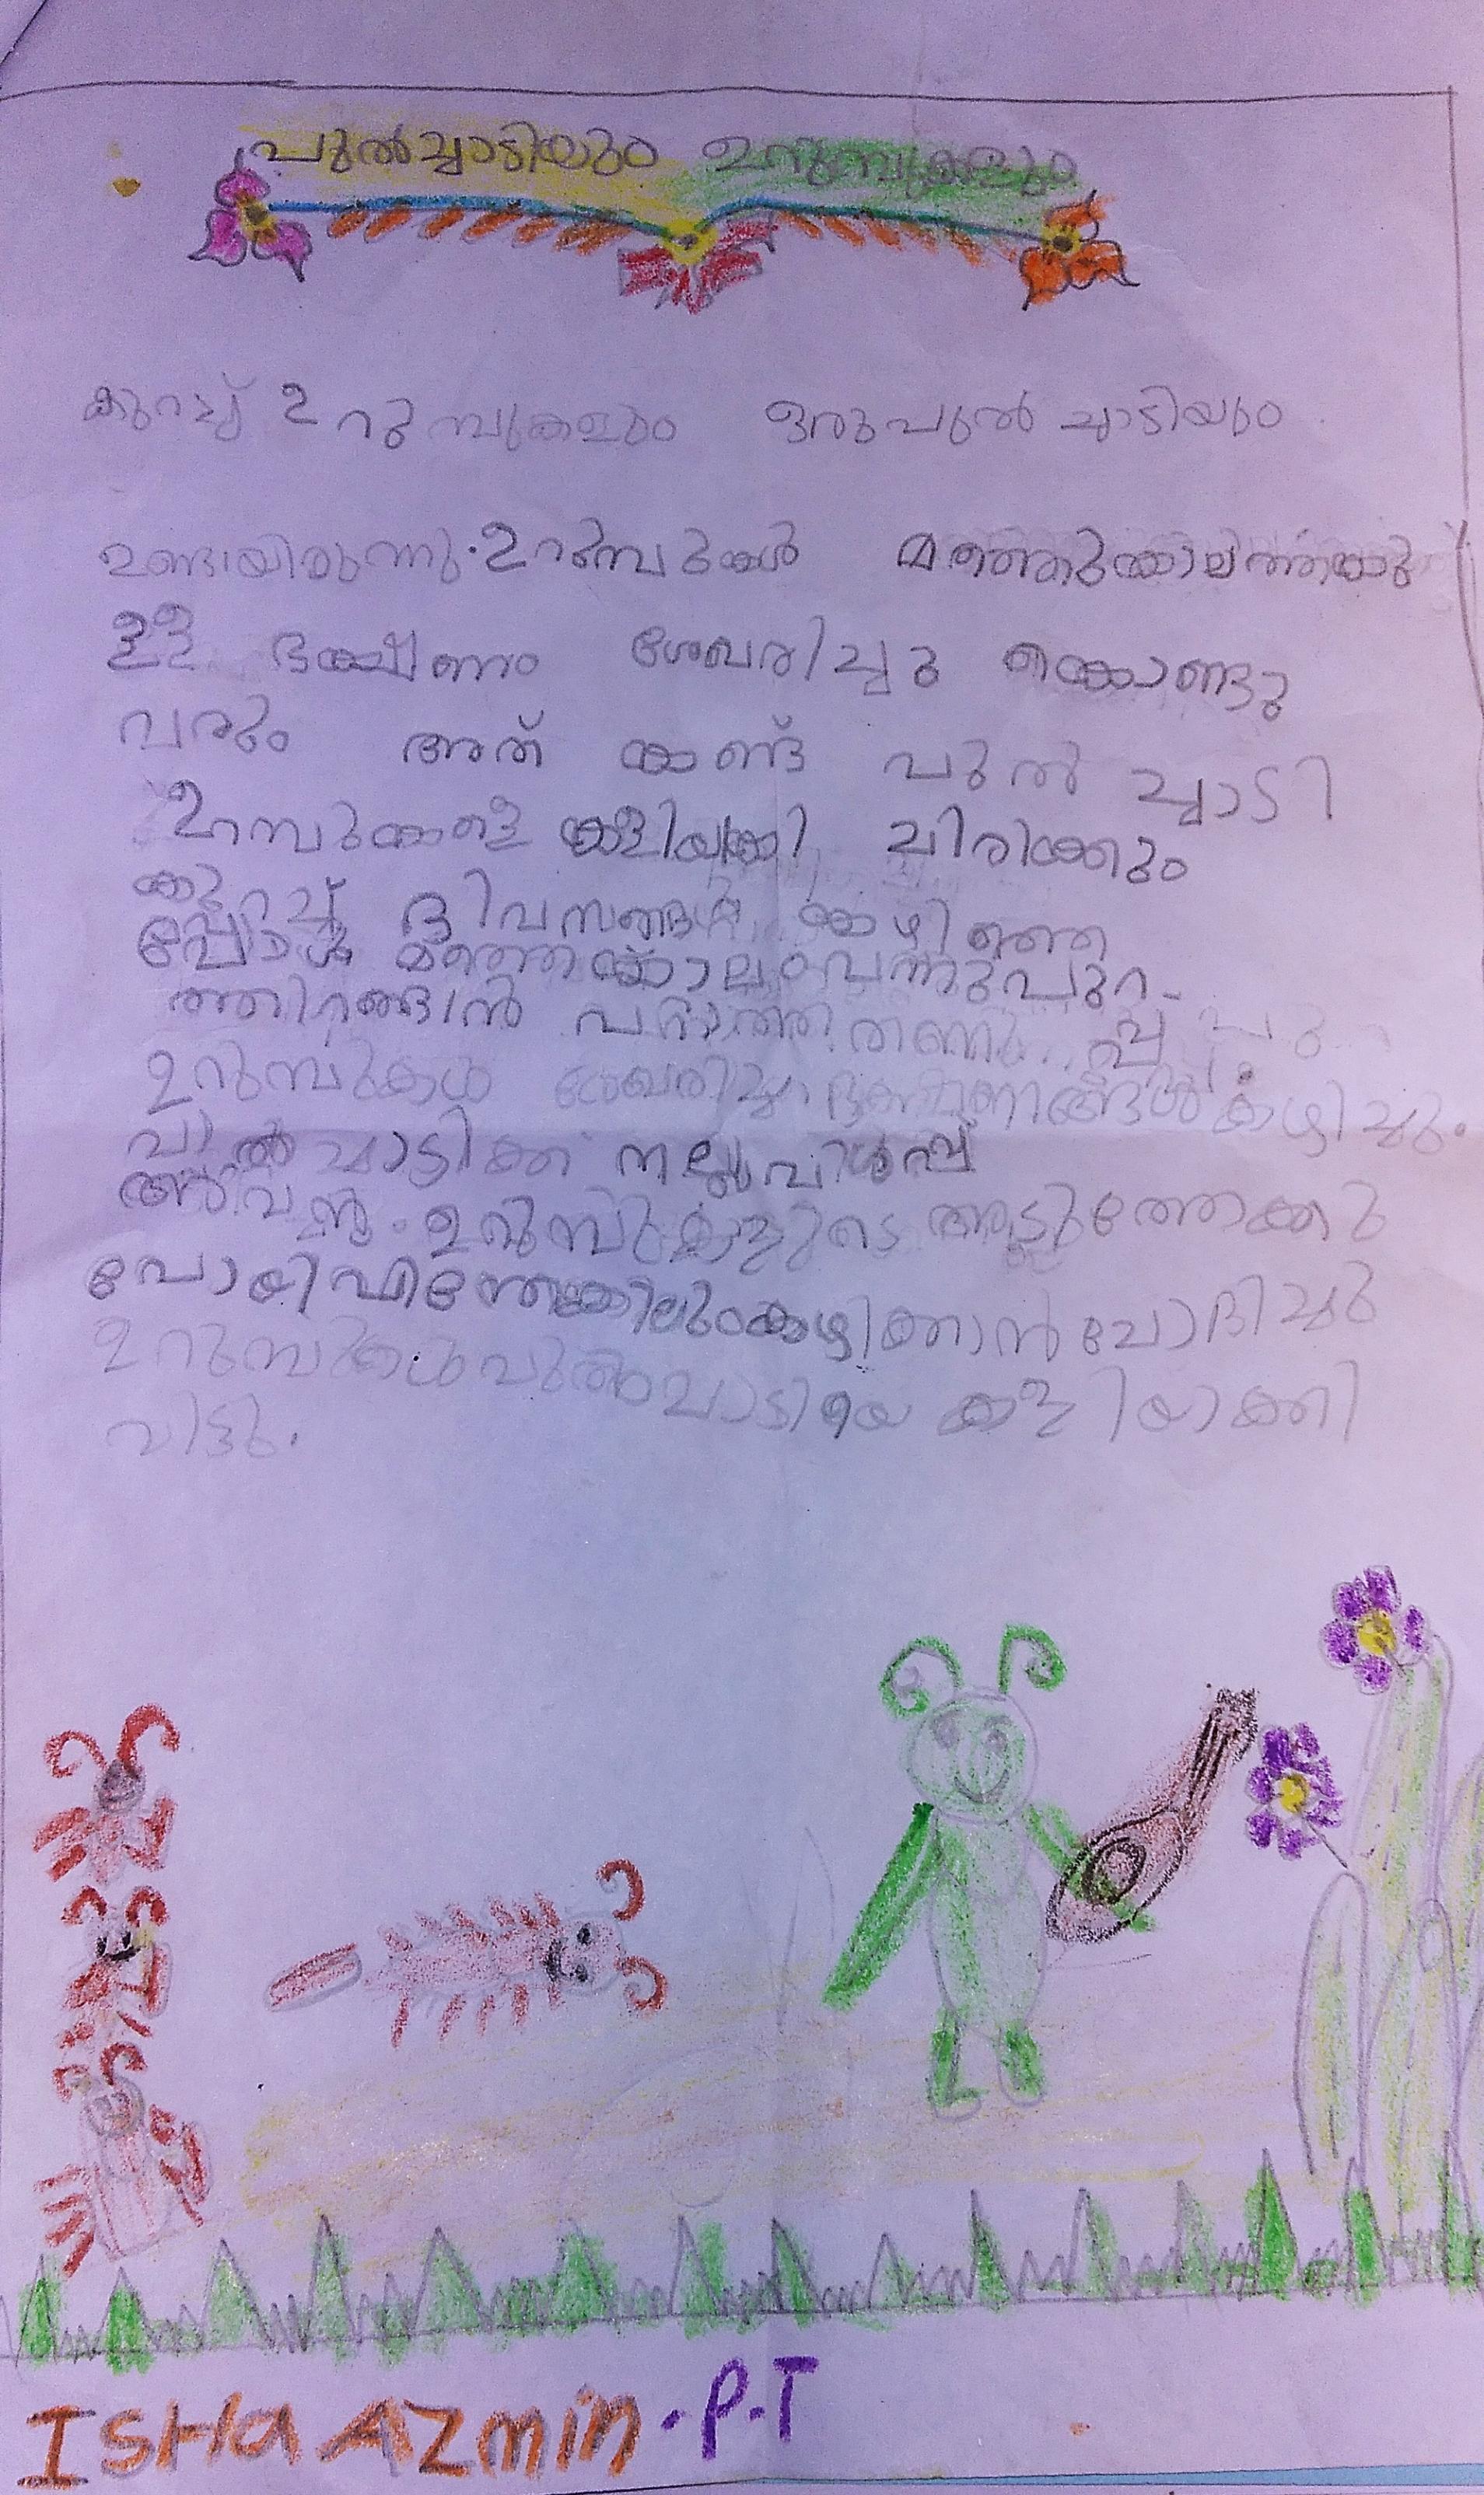 പുൽച്ചാടിയും ഉറുമ്പുകളും
കുറച്ച് ഉറുമ്പുകളും ഒരുപുൽ ച്ചാടിയും
ഉണ്ടായിരുന്നു. ഉറുമ്പുകൾ മഞ്ഞുകാലത്തേക്കു
ള്ള ഭക്ഷണം ശേഖരിച്ചു കൊണ്ടു
വരും അത് കണ്ട് പുൽ ച്ചാടി
ഉറമ്പുകളെ കളിയാക്കി ചിരിക്കും
കുറച്ച് ദിവസങ്ങൾ കഴിഞ്ഞ
പ്പോൾ മഞ്ഞുകാലം വന്നു പുറ
ത്തിറങ്ങാൻ പറ്റാത്ത തണുപ്പ്
ഉറുമ്പുകൾ ശേഖരിച്ച ഭക്ഷണങ്ങൾ കഴിച്ചു.
പുൽച്ചാടിക്ക് നല്ല വിശപ്പ്
അവൻ ഉറുമ്പുകളുടെ അടുത്തേക്കു
പോയി എന്തെങ്കിലും കഴിക്കാൻ ചോദിച്ചു
ഉറുമ്പുകൾ പുൽച്ചാടിയെ കളിയാക്കി
വിട്ടു.
ISHa AZmin. P.T